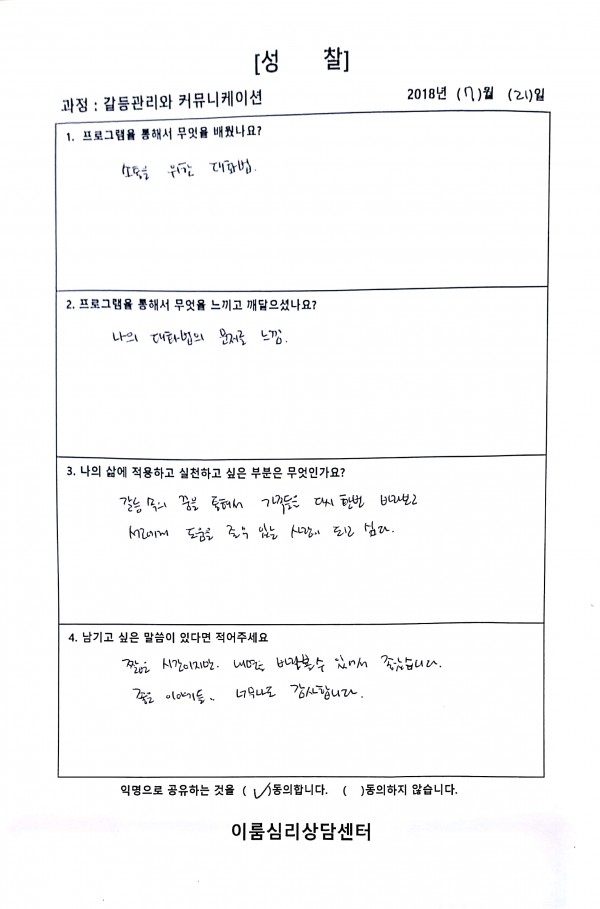 [성 찰]
과정 : 갈등관리와 커뮤니케이션
2018년 (7)월 (21)일
1. 프로그램을 통해서 무엇을 배웠나요?
소통을 위한 대화법.
2. 프로그램을 통해서 무엇을 느끼고 깨달으셨나요?
나의 대화법의 문제를 느낌.
3. 나의 삶에 적용하고 실천하고 싶은 부분은 무엇인가요?
갈등 통해서 가족들을 다시 한번 바라보고
서로에게 도움을 줄 수 있는 사람이 되고 싶다.
4. 남기고 싶은 말씀이 있다면 적어주세요
짧은 시간이지만. 내면을 바라볼 수 있어서 좋았습니다.
좋은 이야기들. 너무나도 감사합니다.
익명으로 공유하는 것을 (✓)동의합니다. ( )동의하지 않습니다.
이룸심리상담센터